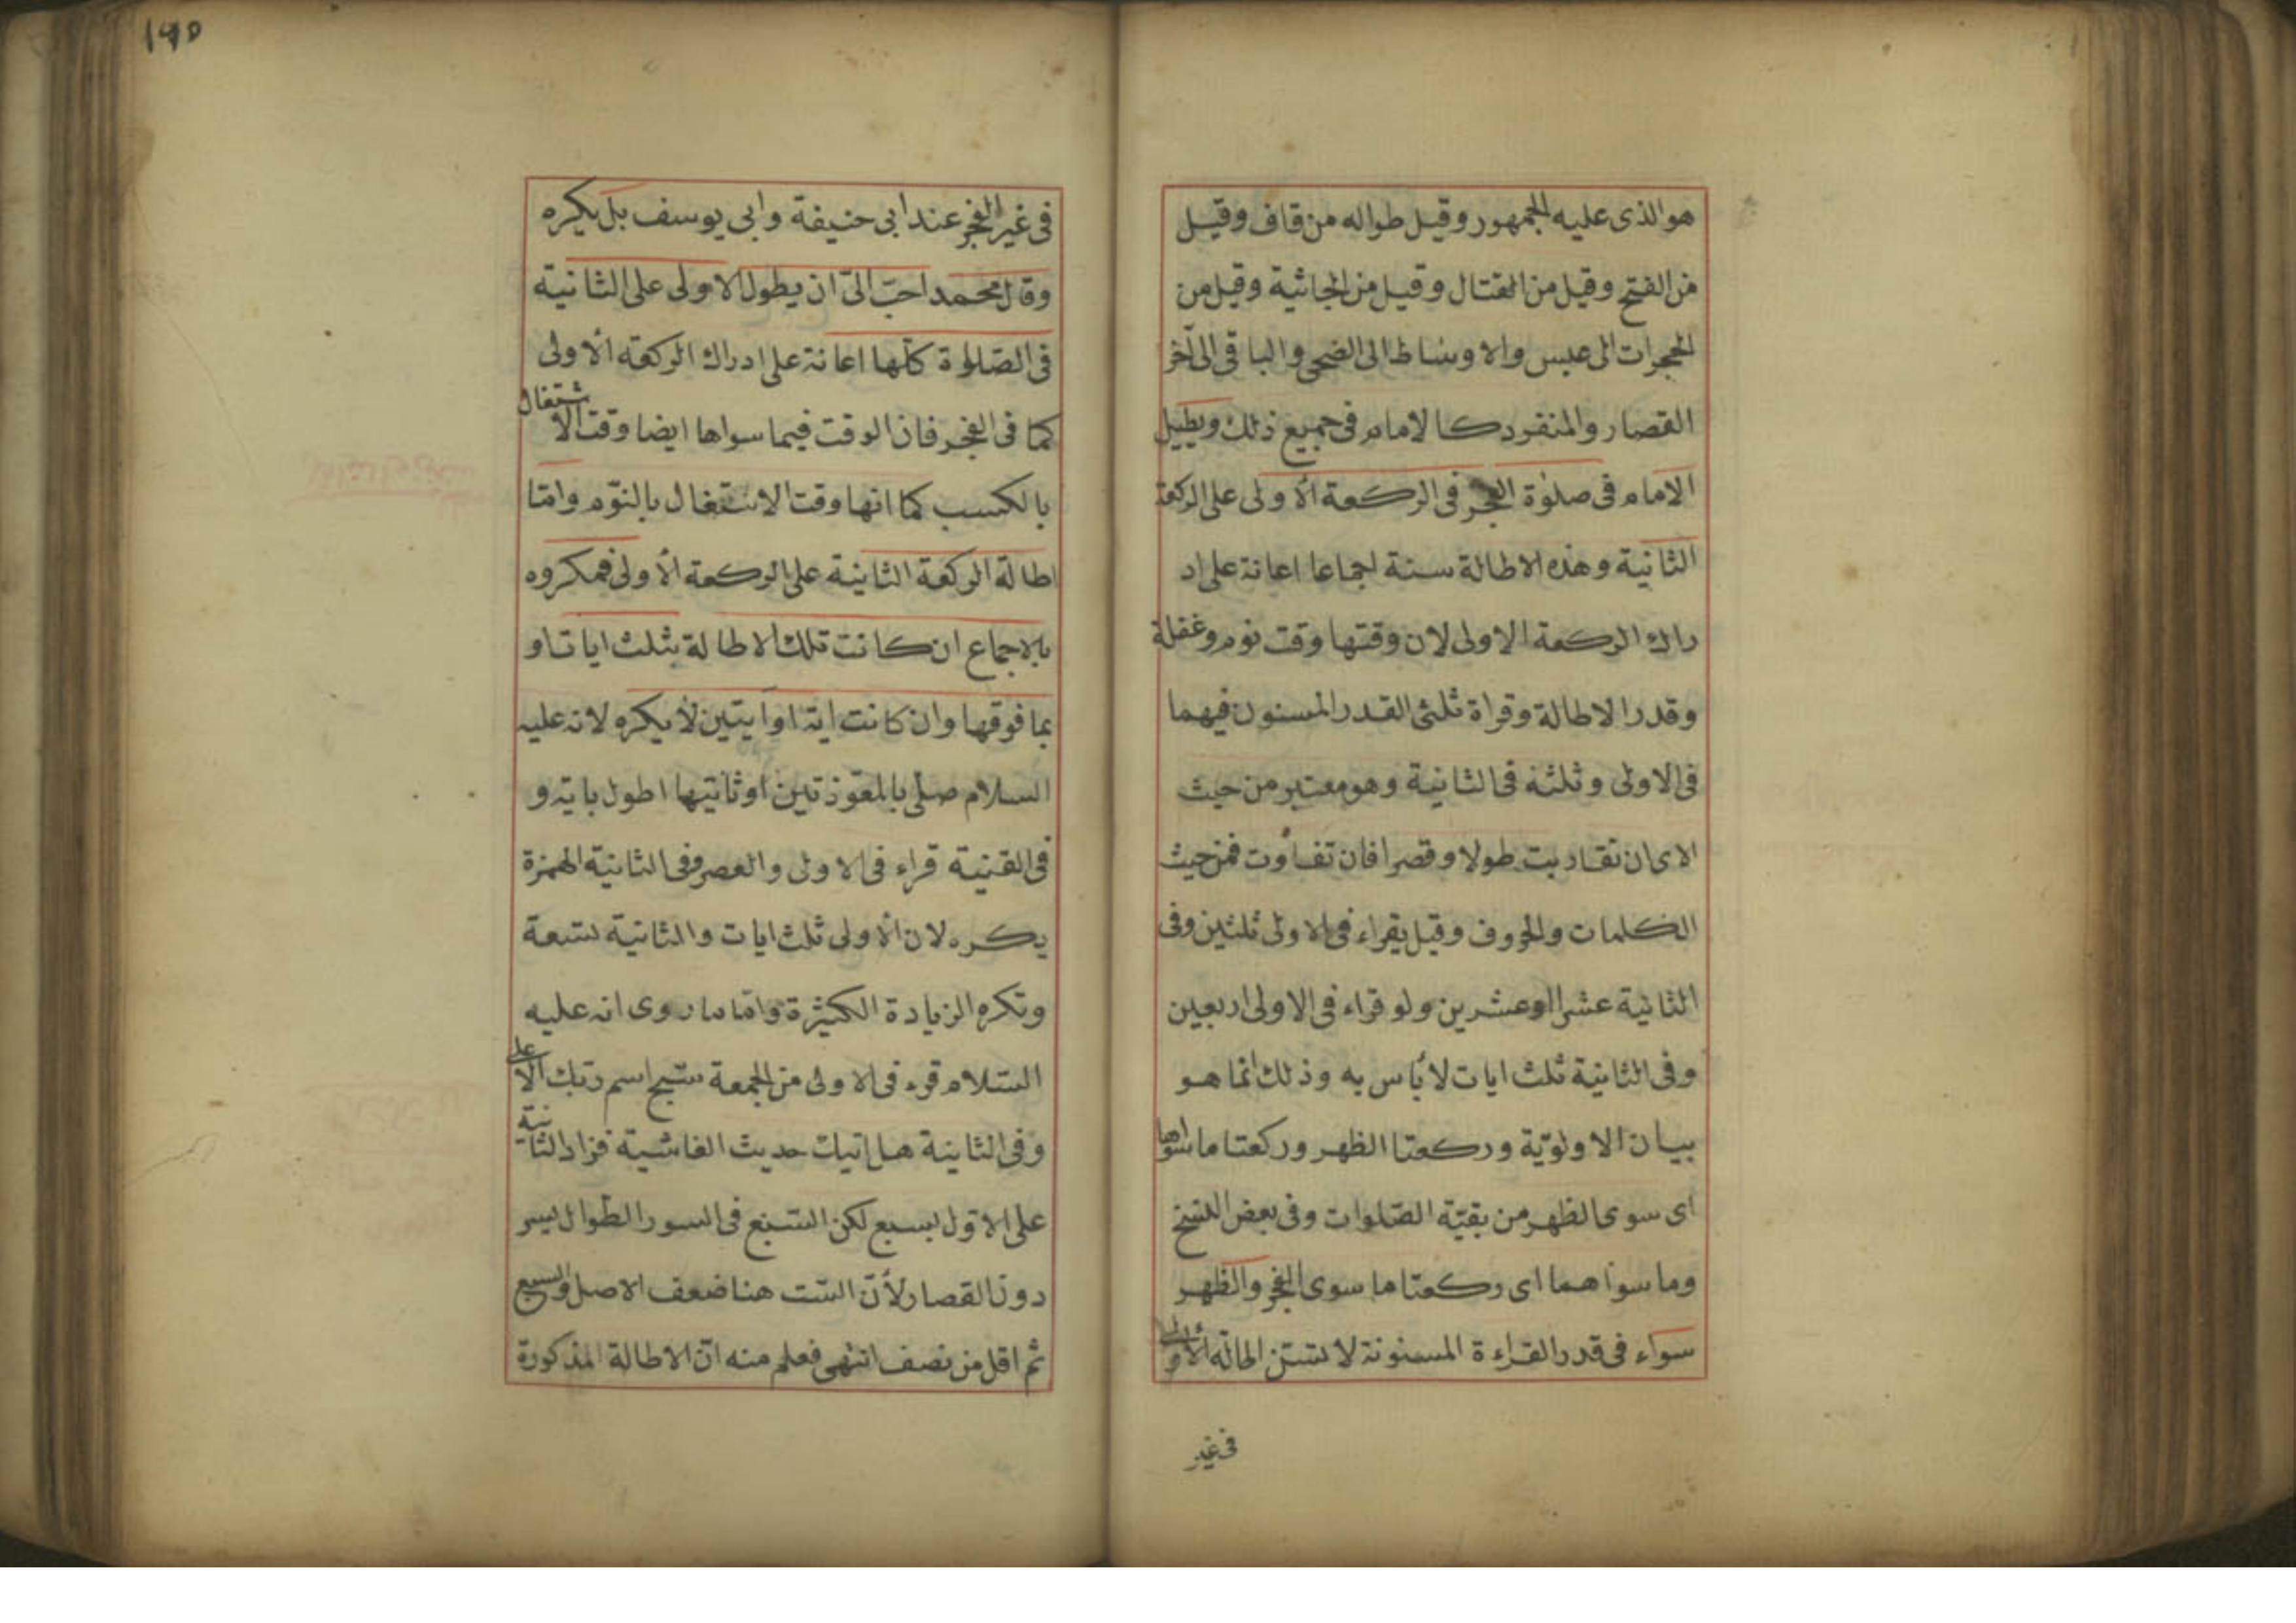 هو الذى عليه الجمهور وقيل طواله من قاف وقيل
من الفتح وقيل من القتال وقيل من الجاثية وقيل من
الحجرات الى عبس والاوساط الى الضحى والباقى الى آخر
القصار والمنفرد كالامام فى جميع ذلك ويطيل
الامام فى صلوة الفجر فى الركعة الاولى على الركعة
الثانية وهذه الاطالة سنة اجماعا اعانة على اد
راك الركعة الاولى لان وقتها وقت نوم وغفلة
وقدر الاطالة وقراة ثلثى القدر المسنون فيهما
فى الاولى وثلثه فى الثانية وهو معتبر من حيث
الاى ان تقاربت طولا وقصرا فان تفاوت فمن حيث
الكلمات والحروف وقيل يقراء فى الاولى ثلثين وفى
الثانية عشرا او عشرين ولو قراء فى الاولى اربعين
وفى الثانية ثلث ايات لا بأس به وذلك انما هو
بيان الاولوية وركعتا الظهر وركعتا ما سواها
اى سوى الظهر من بقية الصلوات وفى بعض النسخ
وما سواهما اى ركعتا ما سوى الفجر والظهر
سواء فى قدر القراءة المسنونة لا تستن اطالة الأولى
فى غير
١٩٥
فى غير الفجر عند ابى حنيفة وابى يوسف بل يكره
وقال محمد احبّ الىّ ان يطول الاولى على الثانية
فى الصلوة كلّها اعانة على ادراك الركعة الأولى
كما فى الفجر فان الوقت فيما سواها ايضا وقت الاشتغال
بالكسب كما انها وقت الاشتغال بالنوم وامّا
اطالة الركعة الثانية على الركعة الأولى فمكروه
بالاجماع ان كانت تلك الاطالة بثلث ايات او
بما فوقها وان كانت اية او آيتين لا يكره لانه عليه
السلام صلّى بالمعوّذتين وثانيتها اطول باية و
فى القنية قراء فى الاولى والعصر وفى الثانية الهمزة
يكره لان الأولى ثلث ايات والثانية تسعة
وتكره الزيادة الكثيرة وامّا ما روى انه عليه
السّلام قرء فى الاولى من الجمعة سبّح اسم ربّك الأعلى
وفى الثانية هل اتيك حديث الغاشية فزاد الثانية
على الاوّل بسبع لكن السّبع فى السور الطّوال يسير
دون القصار لأنّ السّت هنا ضعف الاصل والسبع
ثمّ اقل من نصف انتهى فعلم منه انّ الاطالة المذكورة